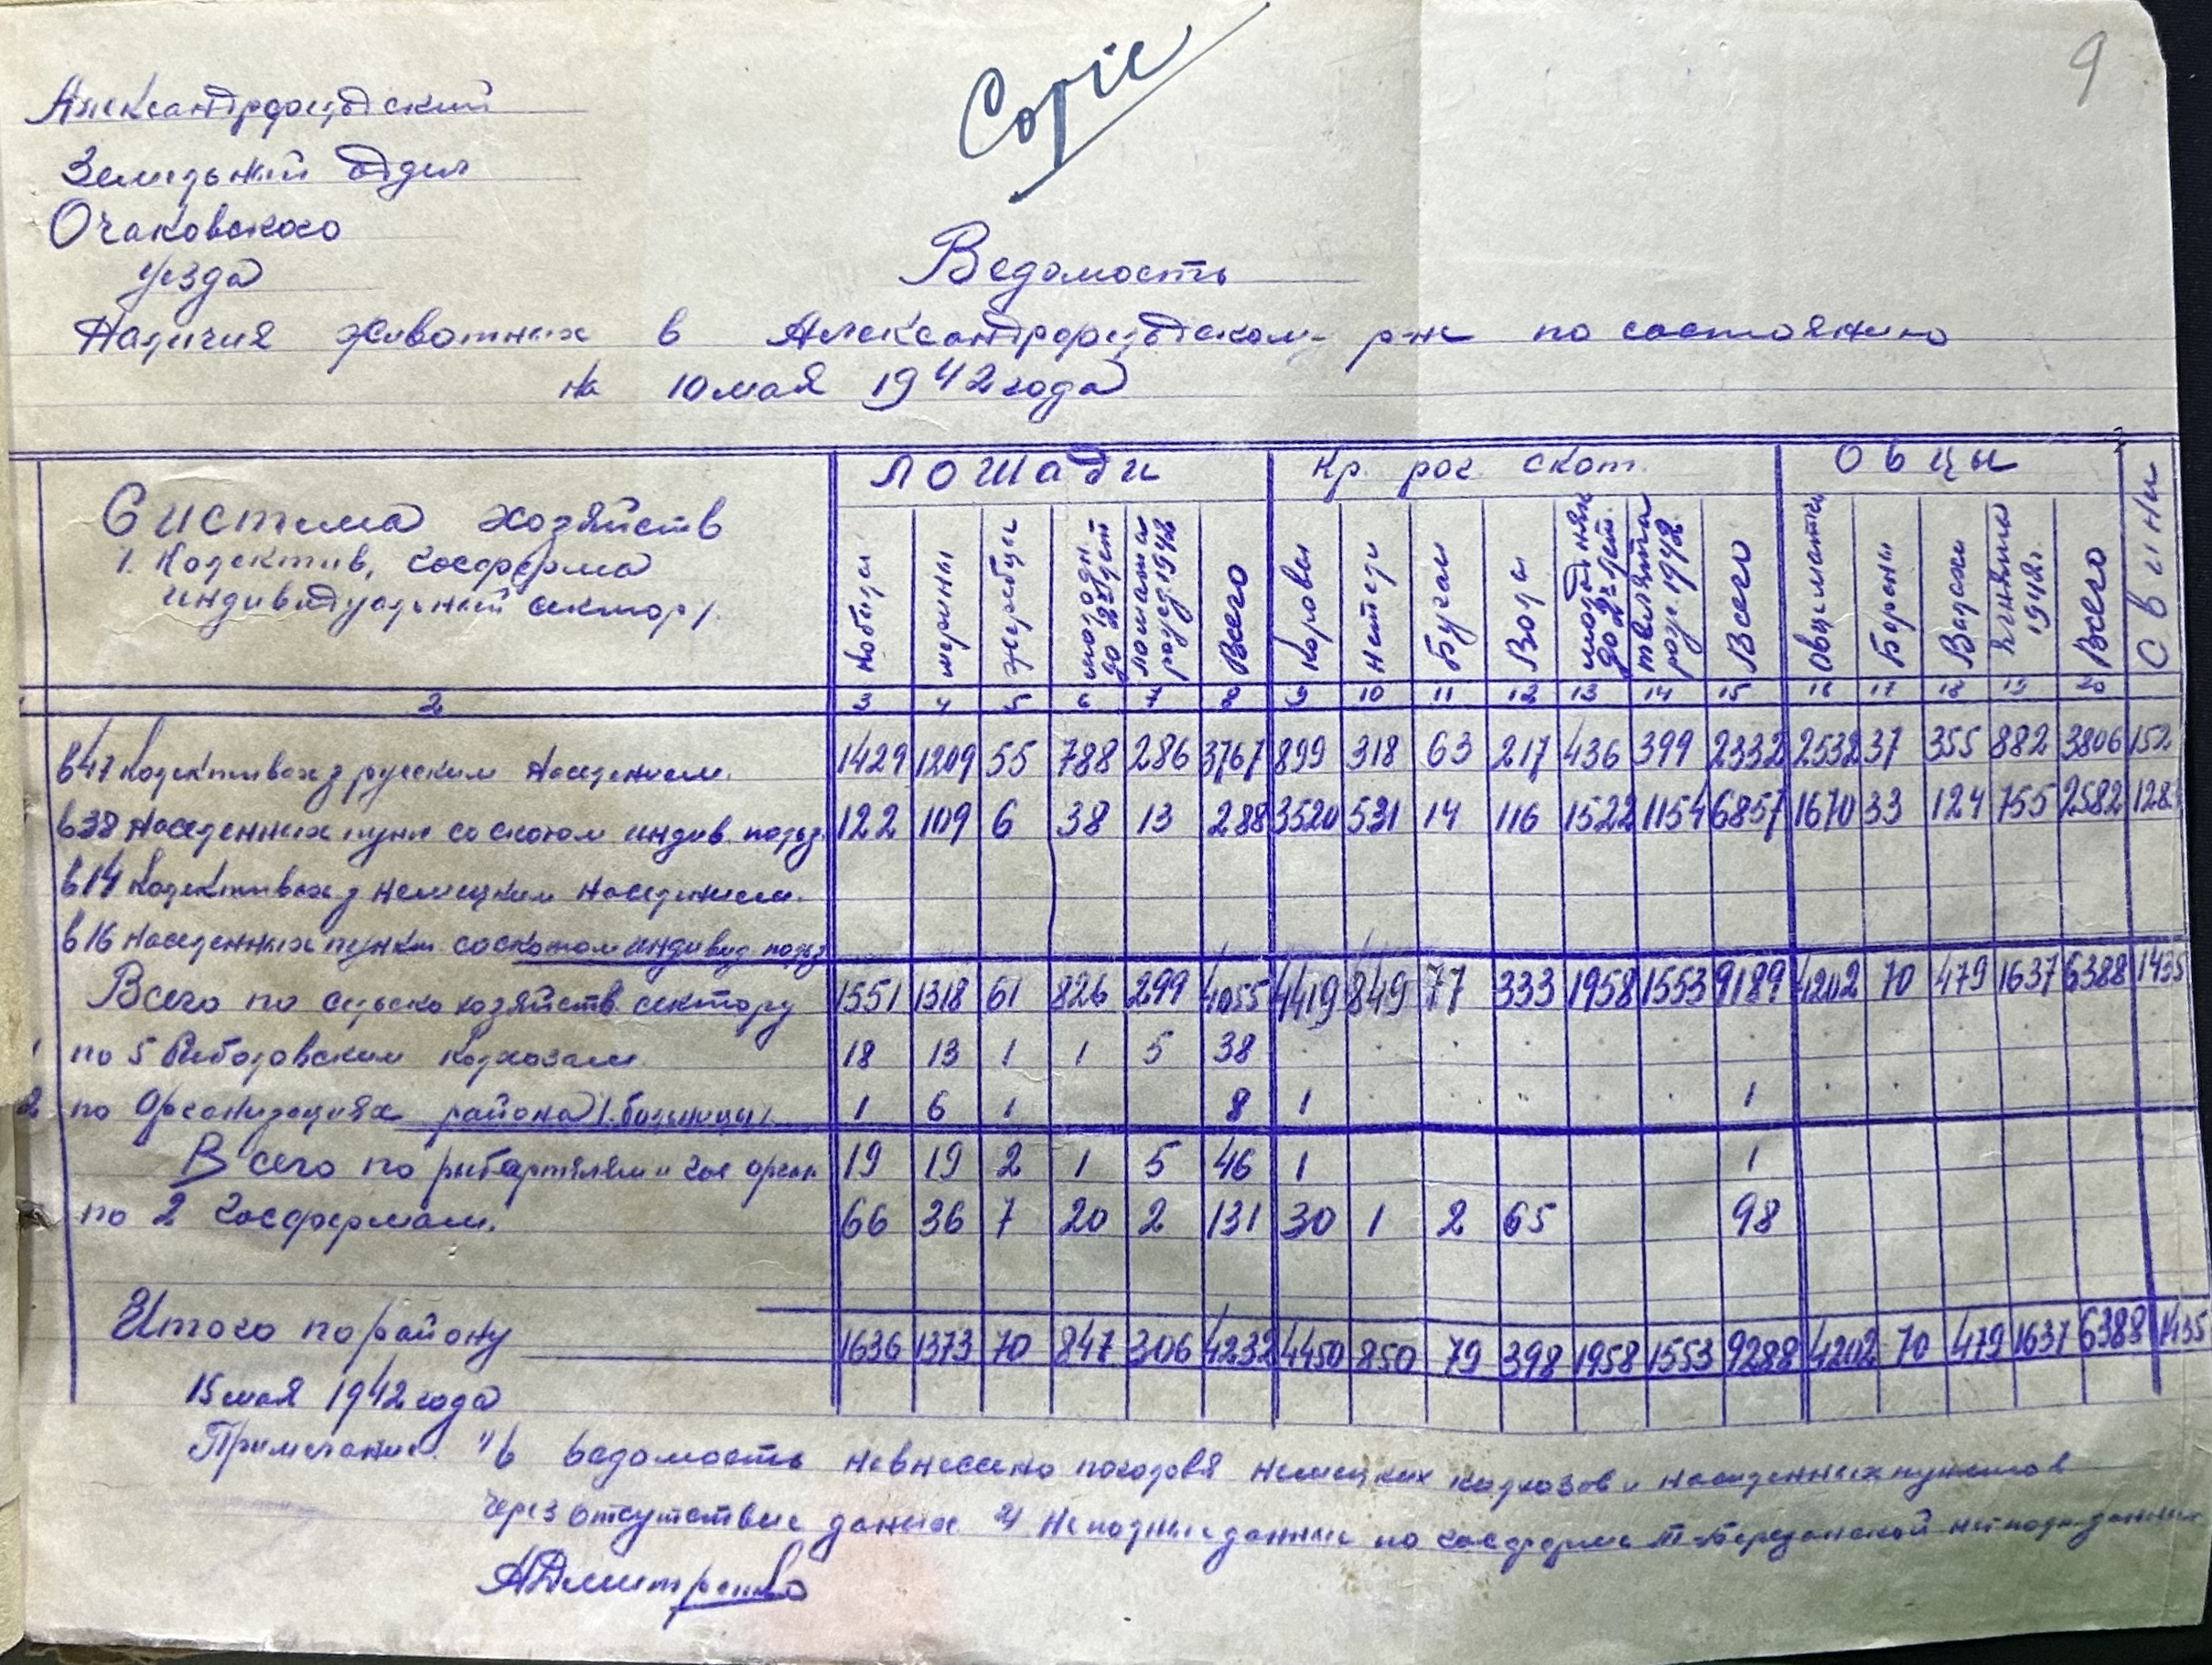 Copie
9
Александрфельдский
Земельный отдел
Очаковского
уезда
Ведомость
Наличия животных в Александрфельдском р-не по состоянию
на 10 мая 1942 года
Система хозяйств
/. Колектив, госферма
индивидуальный сектор /.
Лошади
Кр. рог. скот.
Овцы
Свиньи
Кобылы мерины жеребцы молодн. до 2х лет лошата рожд 1942 Всего Коровы Нетели Бугаи Волы молодняк до 2х лет. телята рожд. 1942 Всего Овцематки Бараны Валахи Ягнята 1942 г. Всего
2 3 4 5 6 7 8 9 10 11 12 13 14 15 16 17 18 19 20
в 47 колективах з русским населением. 1429 1209 55 788 286 3767 899 318 63 217 436 399 2332 2532 37 355 882 3806 152
в 38 населенных пунк со скотом индив. польз. 122 109 6 38 13 288 3520 531 14 116 1522 1154 6857 1670 33 124 755 2582 128
в 14 колективах з немецким населением.
в 16 населенных пункт со скотом индивид польз
Всего по сельско хозяйств. сектору 1551 1318 61 826 299 4055 4419 849 77 333 1958 1553 9189 4202 70 479 1637 6388 1435
1 по 5 Риболовским колхозам. 18 13 1 1 5 38
2 по Организациях района /.больницы/. 1 6 1 8 1 1
Всего по рыбартелям и гос орган 19 19 2 1 5 46 1 1
по 2 Госфермам. 66 36 7 20 2 131 30 1 2 65 98
Итого по району 1636 1373 70 847 306 4232 4450 850 79 398 1958 1553 9288 4202 70 479 1637 6388 1435
15 мая 1942 года
Примечание: 1/ в ведомость невнесено поголовя немецких колхозов и населенных пунктов
через отсутствие даных 2/ Неполные данные по госферме Т-Березанской не подн. данных
АДмитренко